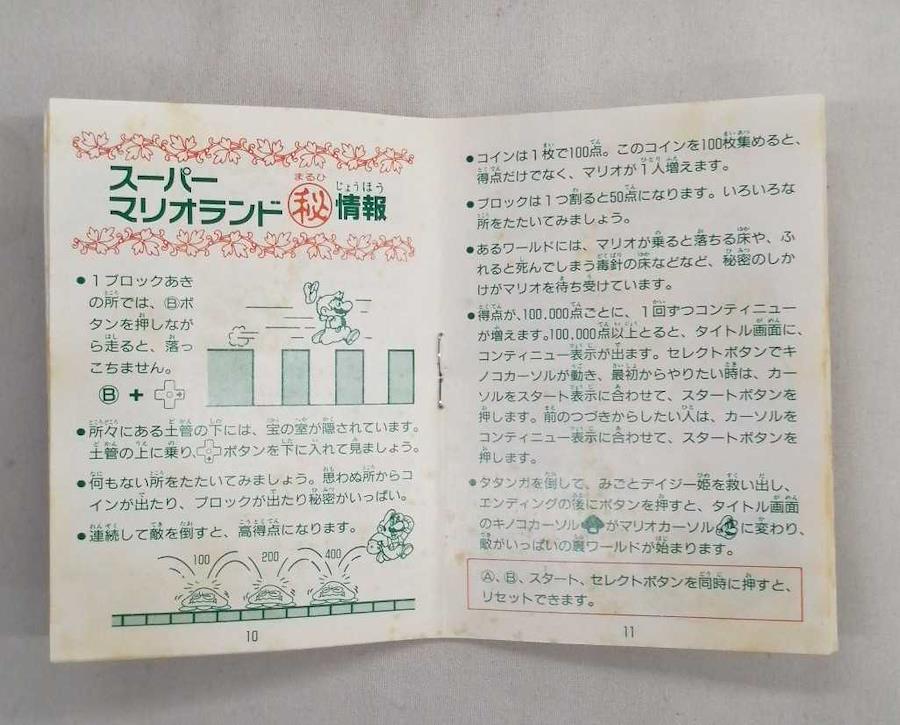 スーパー
マリオランド㊙情報
まるひ じょうほう
●1ブロックあき
の所では、Ⓑボ
タンを押しなが
ら走ると、落っ
こちません。
Ⓑ+
●所々にある土管の下には、宝の室が隠されています。
土管の上に乗り、ボタンを下に入れて見ましょう。
●何もない所をたたいてみましょう。思わぬ所からコ
インが出たり、ブロックが出たり秘密がいっぱい。
●連続して敵を倒すと、高得点になります。
100 200 400
10
●コインは1枚で100点。このコインを100枚集めると、
得点だけでなく、マリオが1人増えます。
●ブロックは1つ割ると50点になります。いろいろな
所をたたいてみましょう。
●あるワールドには、マリオが乗ると落ちる床や、ふ
れると死んでしまう毒針の床などなど、秘密のしか
けがマリオを待ち受けています。
●得点が、100,000点ごとに、1回ずつコンティニュー
が増えます。100,000点以上とると、タイトル画面に、
コンティニュー表示が出ます。セレクトボタンでキ
ノコカーソルが動き、最初からやりたい時は、カー
ソルをスタート表示に合わせて、スタートボタンを
押します。前のつづきからしたい人は、カーソルを
コンティニュー表示に合わせて、スタートボタンを
押します。
●タタンガを倒して、みごとデイジー姫を救い出し、
エンディングの後にボタンを押すと、タイトル画面
のキノコカーソルがマリオカーソルに変わり、
敵がいっぱいの裏ワールドが始まります。
Ⓐ、Ⓑ、スタート、セレクトボタンを同時に押すと、
リセットできます。
11